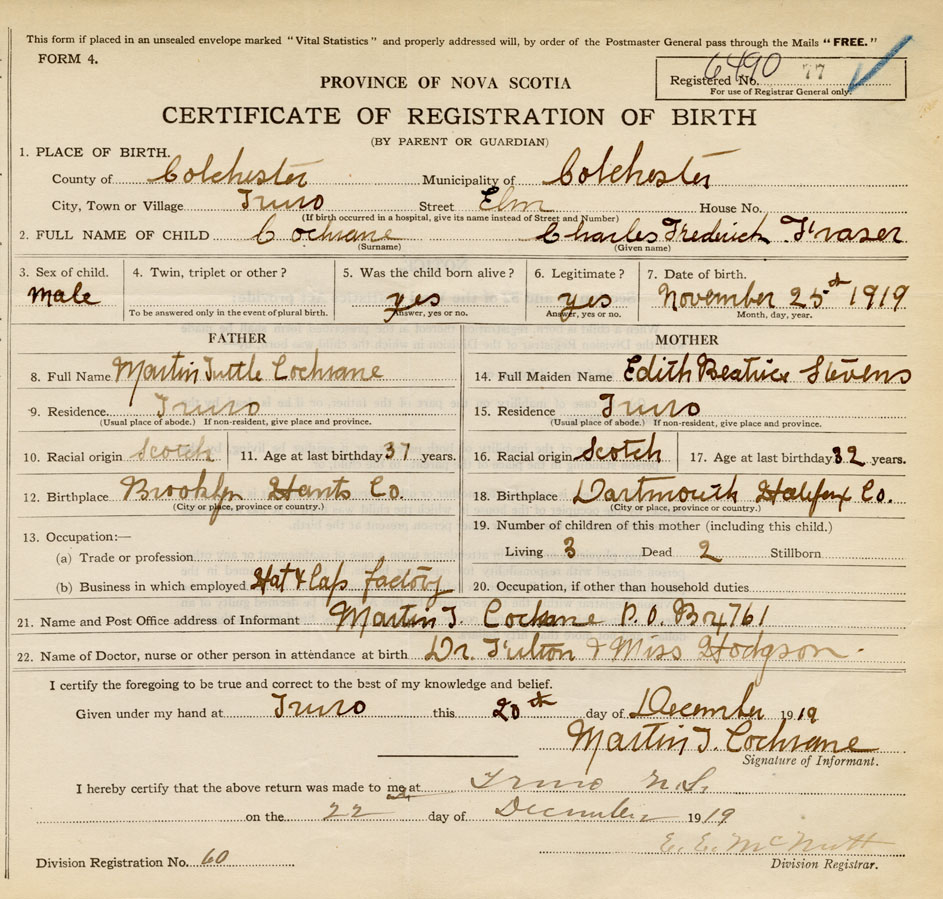 This form if placed in an unsealed envelope marked "Vital Statistics" and properly addressed will, by order of the Postmaster General pass through the Mails "FREE."
FORM 4.
6490 77
Registered No.
For use of Registrar General only.
PROVINCE OF NOVA SCOTIA
CERTIFICATE OF REGISTRATION OF BIRTH
(BY PARENT OR GUARDIAN)
1. PLACE OF BIRTH.
County of Colchester Municipality of Colchester
City, Town or Village Truro Street Elm House No.
(If birth occurred in a hospital, give its name instead of Street and Number)
2. FULL NAME OF CHILD Cochrane Charles Frederick Fraser
(Surname) (Given name)
3. Sex of child. 4. Twin, triplet or other? 5. Was the child born alive? 6. Legitimate? 7. Date of birth.
male yes yes November 25th 1919
To be answered only in the event of plural birth. Answer, yes or no. Answer, yes or no. Month, day, year.
FATHER MOTHER
8. Full Name Martin Tuttle Cochrane 14. Full Maiden Name Edith Beatrice Stevens
9. Residence. Truro 15. Residence Truro
(Usual place of abode.) If non-resident, give place and province. (Usual place of abode.) If non-resident, give place and province.
10. Racial origin Scotch 11. Age at last birthday 37 years. 16. Racial origin Scotch 17. Age at last birthday 32 years.
12. Birthplace Brooklyn Hants Co. 18. Birthplace Dartmouth Halifax Co.
(City or place, province or country.) (City or place, province or country.)
13. Occupation:— 19. Number of children of this mother (including this child.)
(a) Trade or profession Living 3 Dead 2 Stillborn
(b) Business in which employed Hat & Cap factory 20. Occupation, if other than household duties
21. Name and Post Office address of Informant Martin T. Cochrane P.O. Bx 761
22. Name of Doctor, nurse or other person in attendance at birth Dr. Fulton & Miss Hodgson.
I certify the foregoing to be true and correct to the best of my knowledge and belief.
Given under my hand at Truro this 20th day of December 1919
Martin T. Cochrane
Signature of Informant.
I hereby certify that the above return was made to me at Truro N.S.
on the 22 day of December 1919
E. E. McNutt
Division Registration No. 60 Division Registrar.